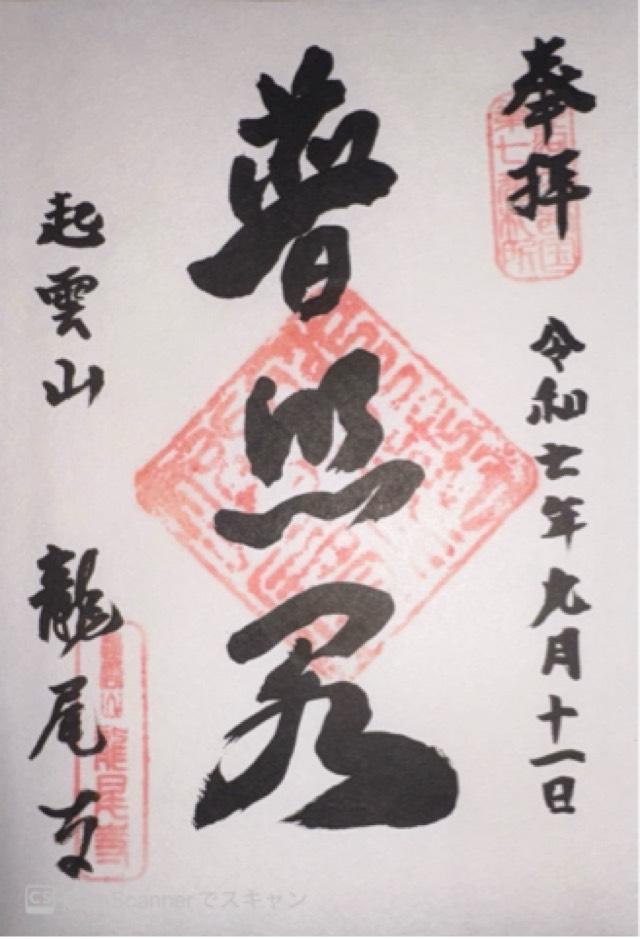 奉拝
令和七年九月十一日
普照閣
起雲山 龍尾寺
龍尾寺
CS CamScannerでスキャン